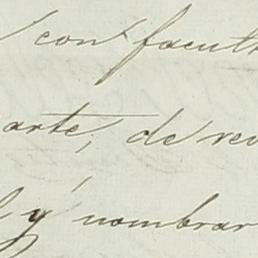 con facult
arte, de rev
y nombrar